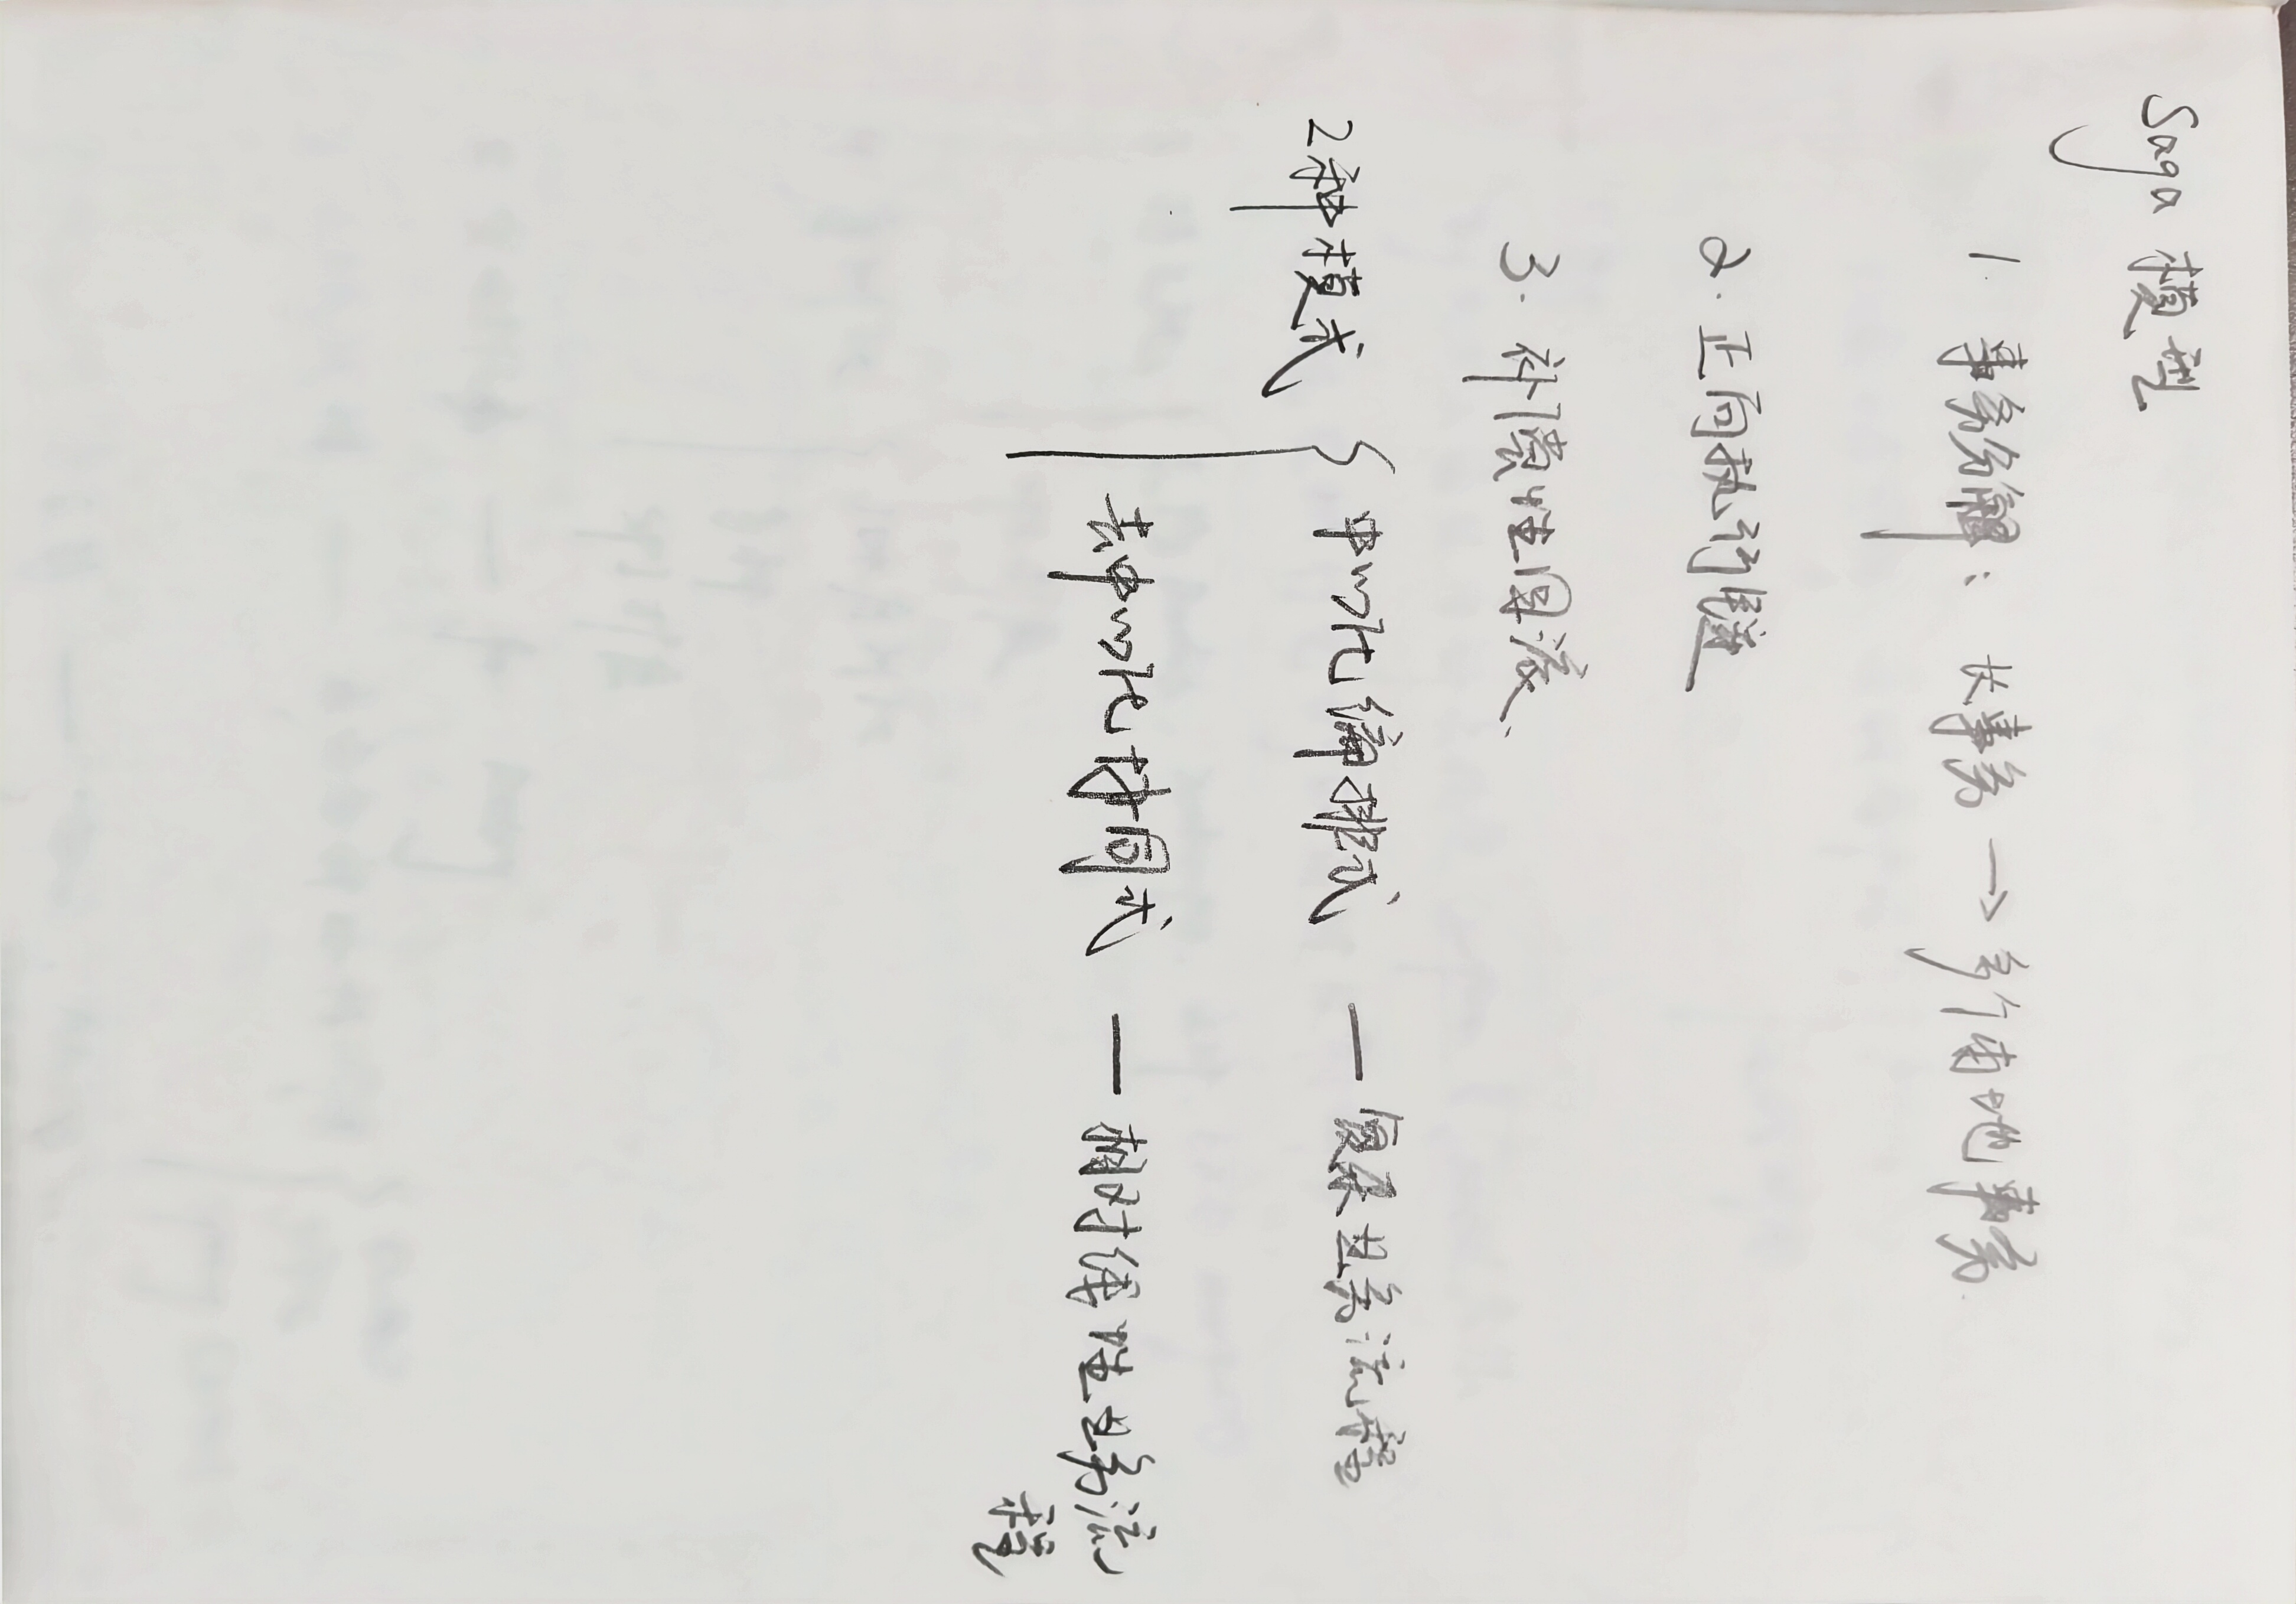 Saga 模型
1. 事务分解：长事务 → 多个本地事务.
2. 正向执行链
3. 补偿性回滚、
2种模式 { 中心化编排式 — 复杂业务流程
去中心化协同式 — 相对线性业务流
程